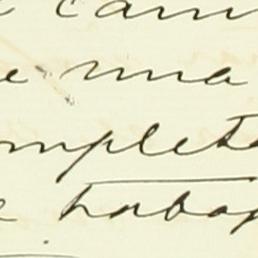 cam
e una
omplet
e trabaj